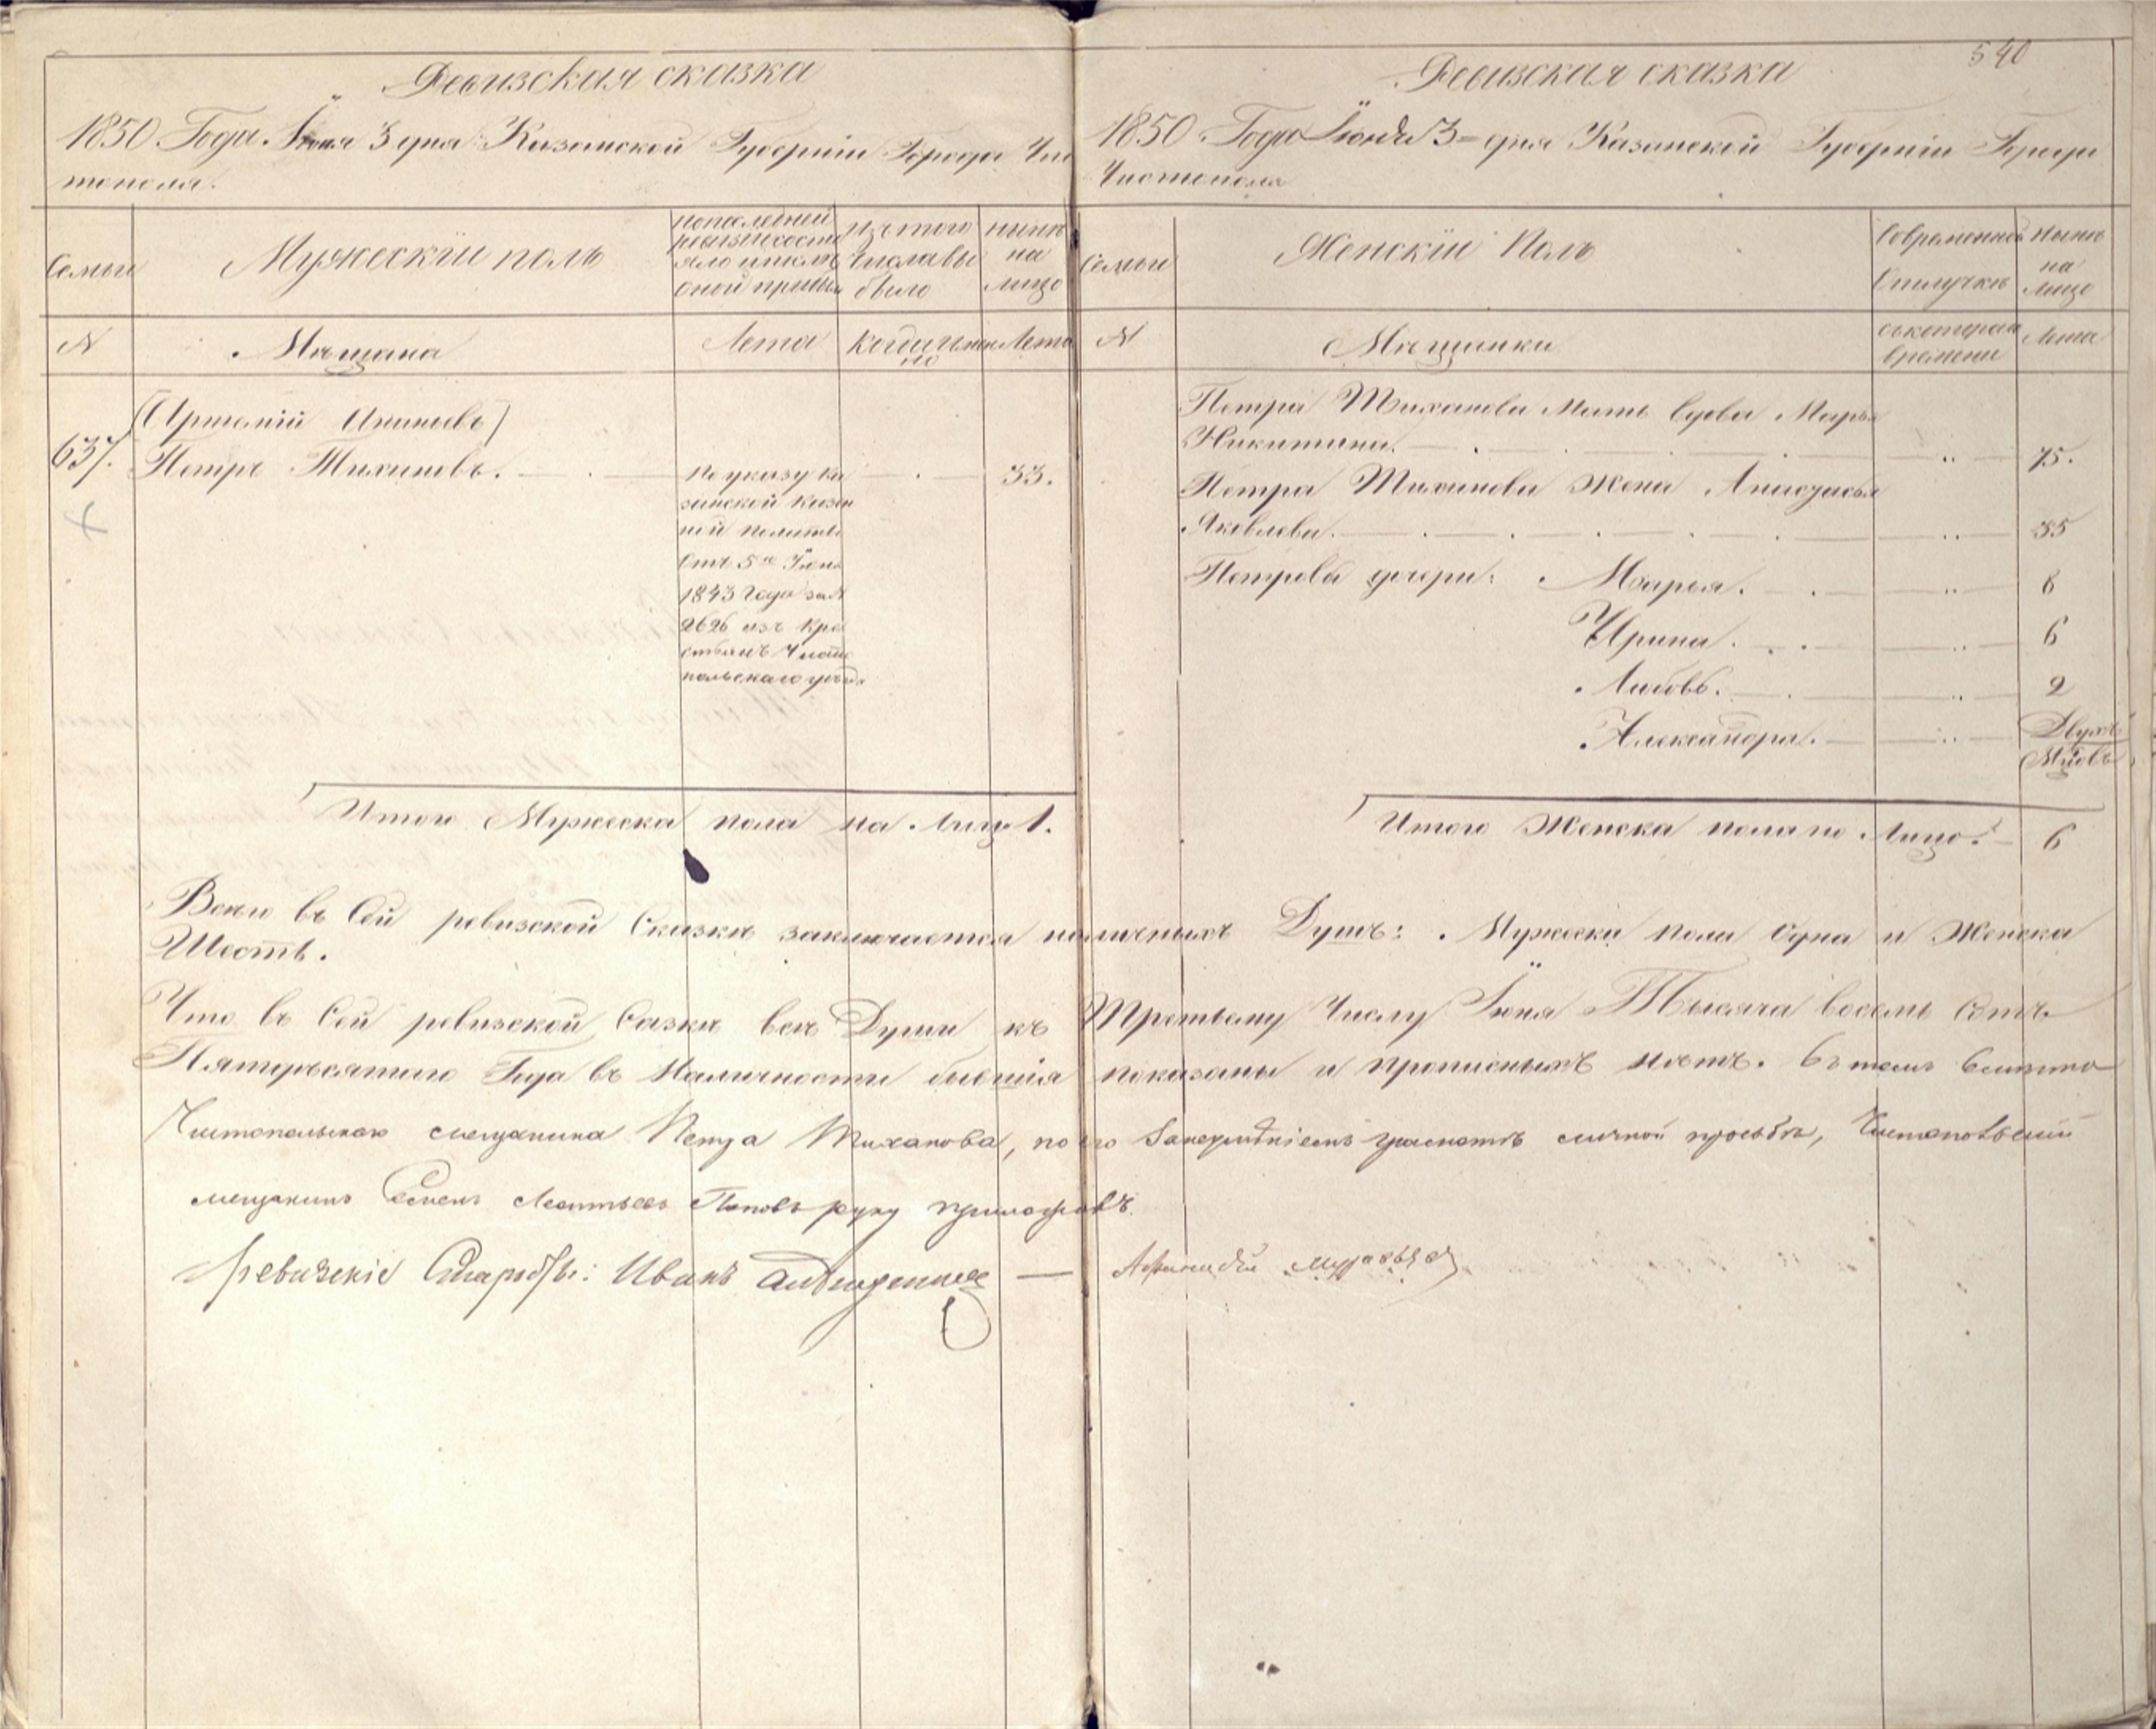 Ревизская сказка
1850 Года Іюня 3 дня Казанской Губерніи Города Чис
тополя.
Семьи
Мужескій полъ
по последней
ревизіи состо
яло и после
оной прибы
изъ того
числа вы
было
ныне
на
лицо
N
Мѣщана
Лета
Когда имен
но
Лета
(Артемій Ананьевъ)
637. Петръ Тихановъ.
По указу Ка
занской Казен
ной палаты
Отъ 5го Іюня
1843 Года за N
2626 изъ кре
стьянъ Чисто
польскаго уезда
33.
Итого Мужеска пола на Лицо 1.
540
Ревизская сказка
1850 Года Іюня 3 = дня Казанской Губерніи Города
Чистополя
Семьи
Женскій Полъ
Во временной
Отлучке
Ныне
на
Лицо
N
Мѣщанки
съ котораго
времени
Лета
Петра Тиханова Мать вдова Марья
Никитина. 75.
Петра Тиханова Жена Анисья
Яковлева. 35
Петровы дочери: Марья. 8
Ирина. 6
Любовь. 2
Александра. Двухъ
Мцовъ
Итого Женска пола на Лицо: 6
Всего въ Сей ревизской Сказке заключается наличныхъ Душъ: Мужеска пола Одна и Женска
Шесть.
Что въ Сей ревизской Сазке все Души къ Третьему Числу Іюня Тысяча восемь Сотъ
Пятидесятого Года въ Наличности бывшія показаны и прописныхъ нѣтъ. Въ томъ вместо
Чистопольскаго мещанина Петра Тиханова, по его личной просьбе, Чистопольскій
мещанинъ Семенъ Леонтьевъ Поповъ руку приложилъ.
Ревизскіе Старосты: Иванъ —